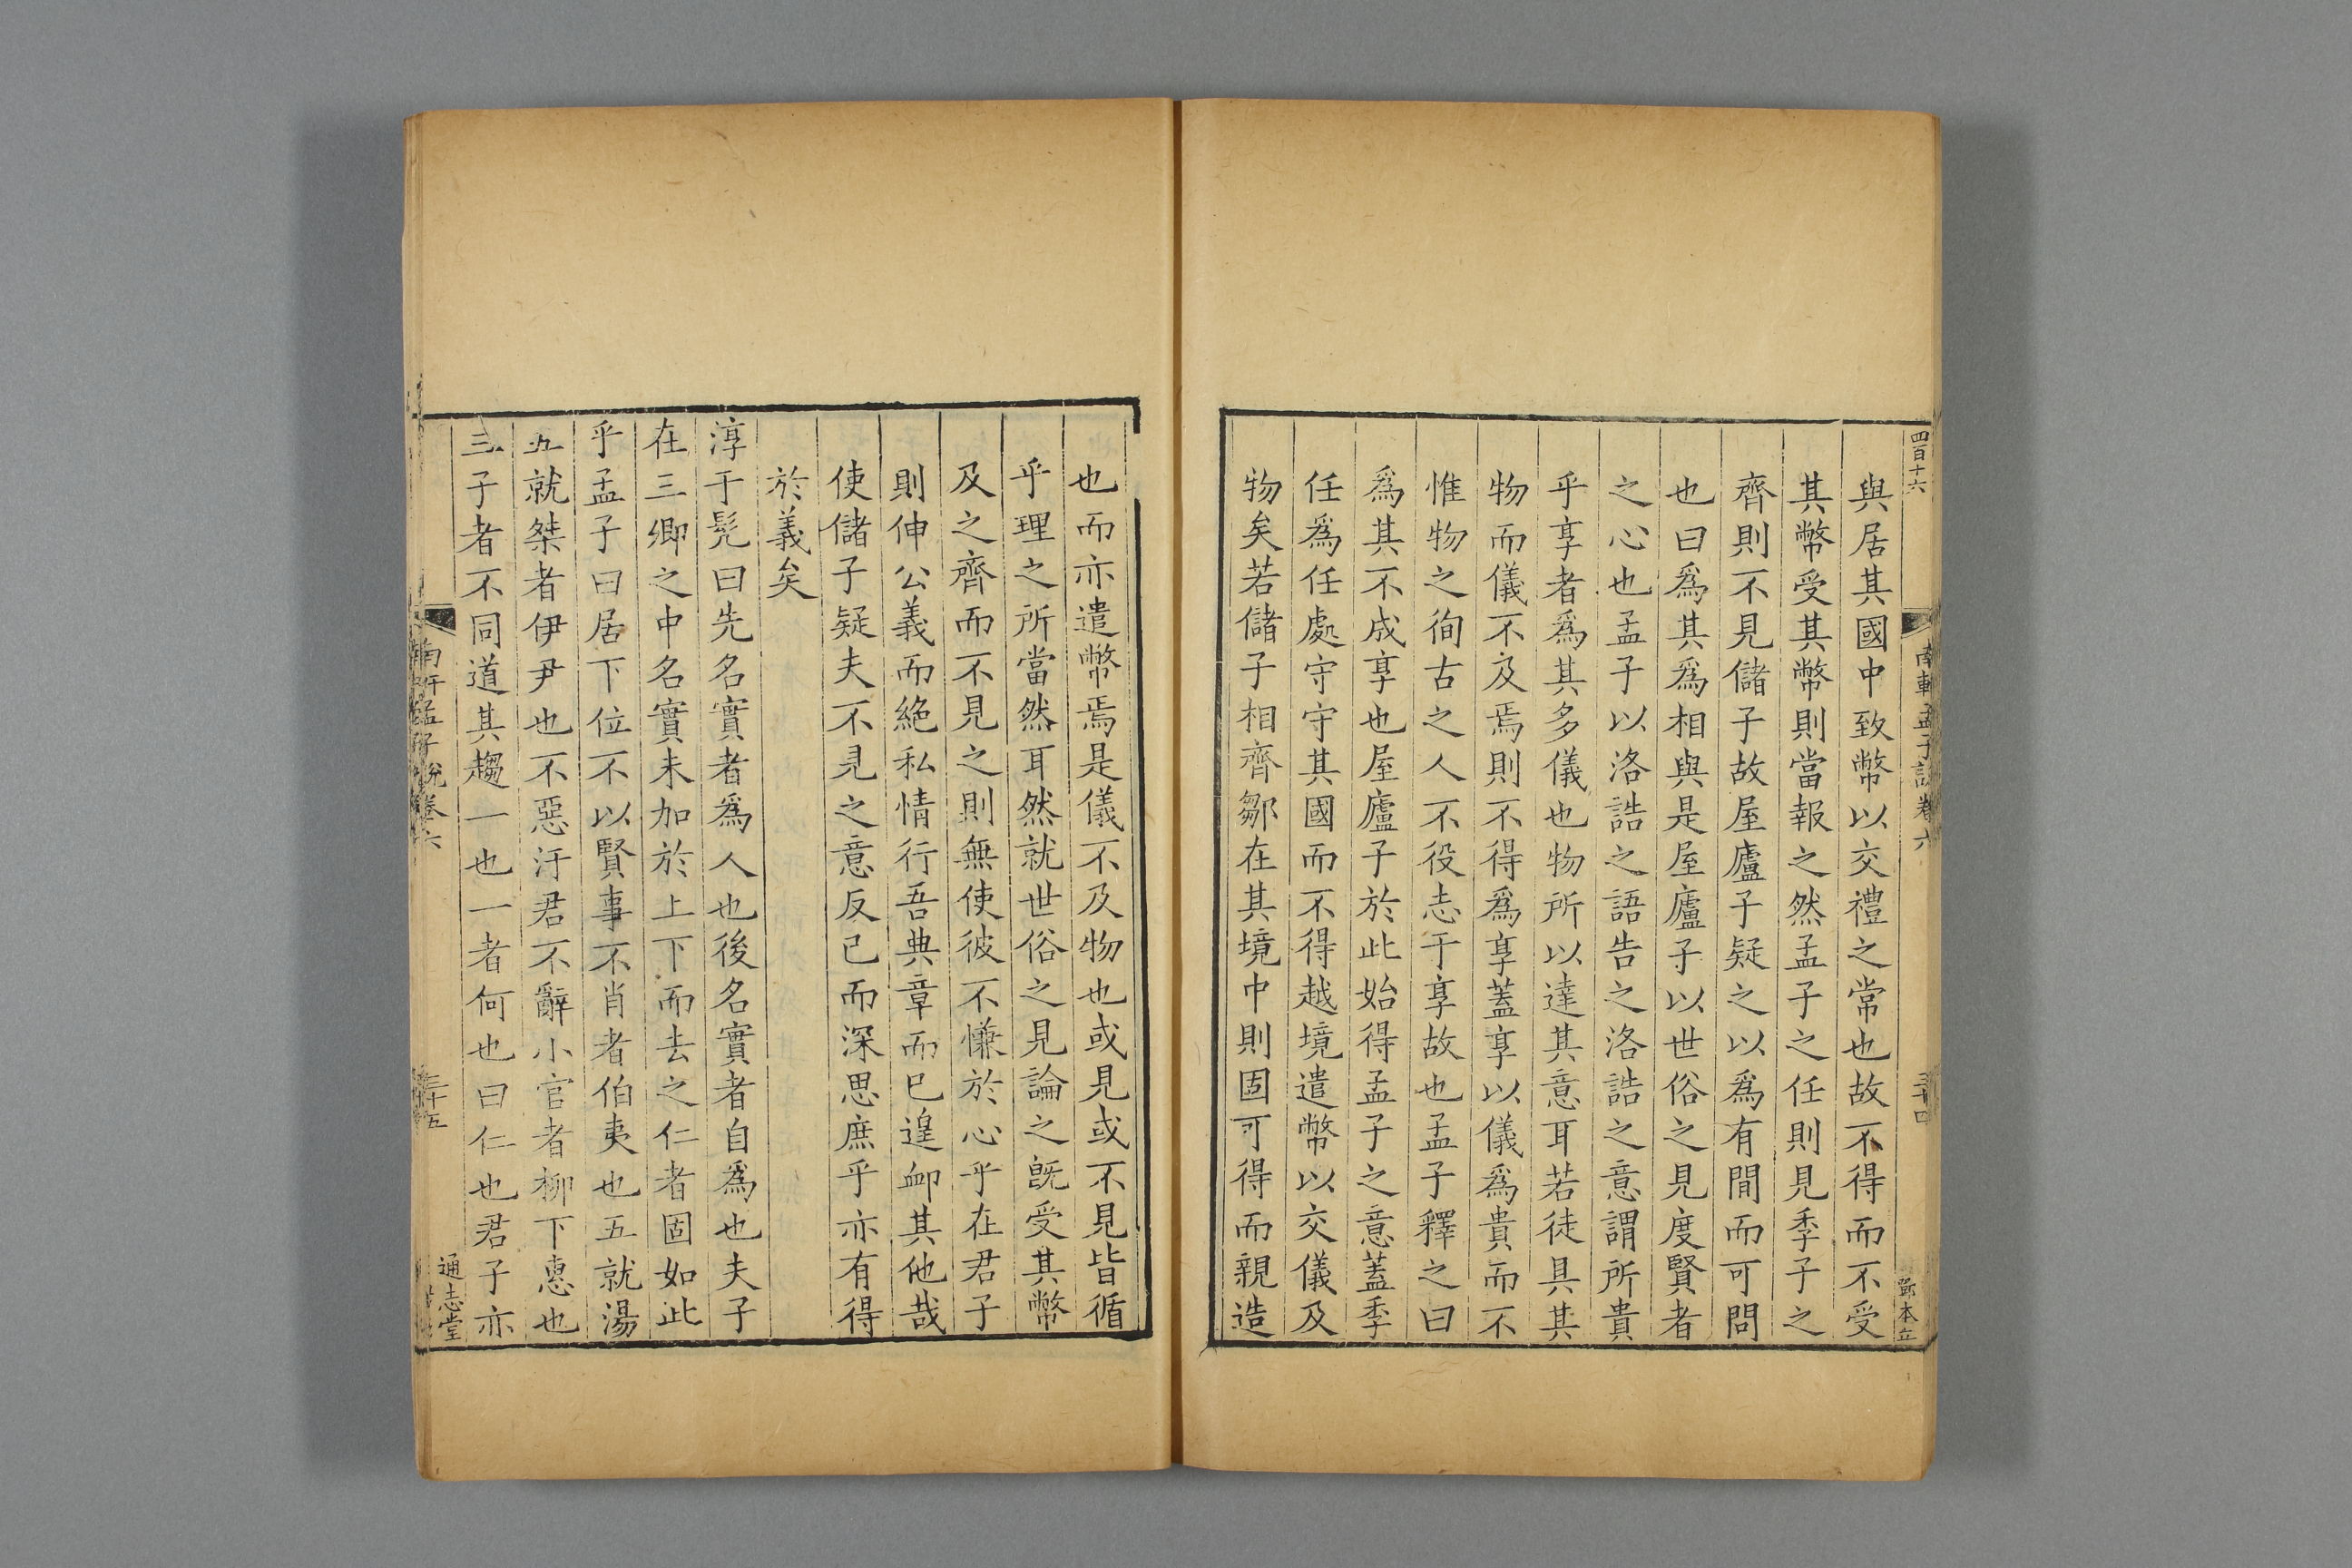 四百十六
南軒孟子說卷六
三十四
與居其國中致幣以交禮之常也故不得而不受
其幣受其幣則當報之然孟子之任則見季子之
齊則不見儲子故屋廬子疑之以為有間而可問
也曰為其為相與是屋廬子以世俗之見度賢者
之心也孟子以洛誥之語告之洛誥之意謂所貴
乎享者為其多儀也物所以達其意耳若徒具其
物而儀不及焉則不得為享蓋享以儀為貴而不
惟物之徇古之人不役志于享故也孟子釋之曰
為其不成享也屋廬子於此始得孟子之意蓋季
任為任處守守其國而不得越境遣幣以交儀及
物矣若儲子相齊鄒在其境中則固可得而親造
也而亦遣幣焉是儀不及物也或見或不見皆循
乎理之所當然耳然就世俗之見論之旣受其幣
及之齊而不見之則無使彼不慊於心乎在君子
則伸公義而絶私情行吾典章而已遑卹其他哉
使儲子疑夫不見之意反已而深思庶乎亦有得
於義矣
淳于髠曰先名實者為人也後名實者自為也夫子
在三卿之中名實未加於上下而去之仁者固如此
乎孟子曰居下位不以賢事不肖者伯夷也五就湯
五就桀者伊尹也不惡汙君不辭小官者柳下惠也
三子者不同道其趨一也一者何也曰仁也君子亦
南軒孟子說卷六
三十五
通志堂